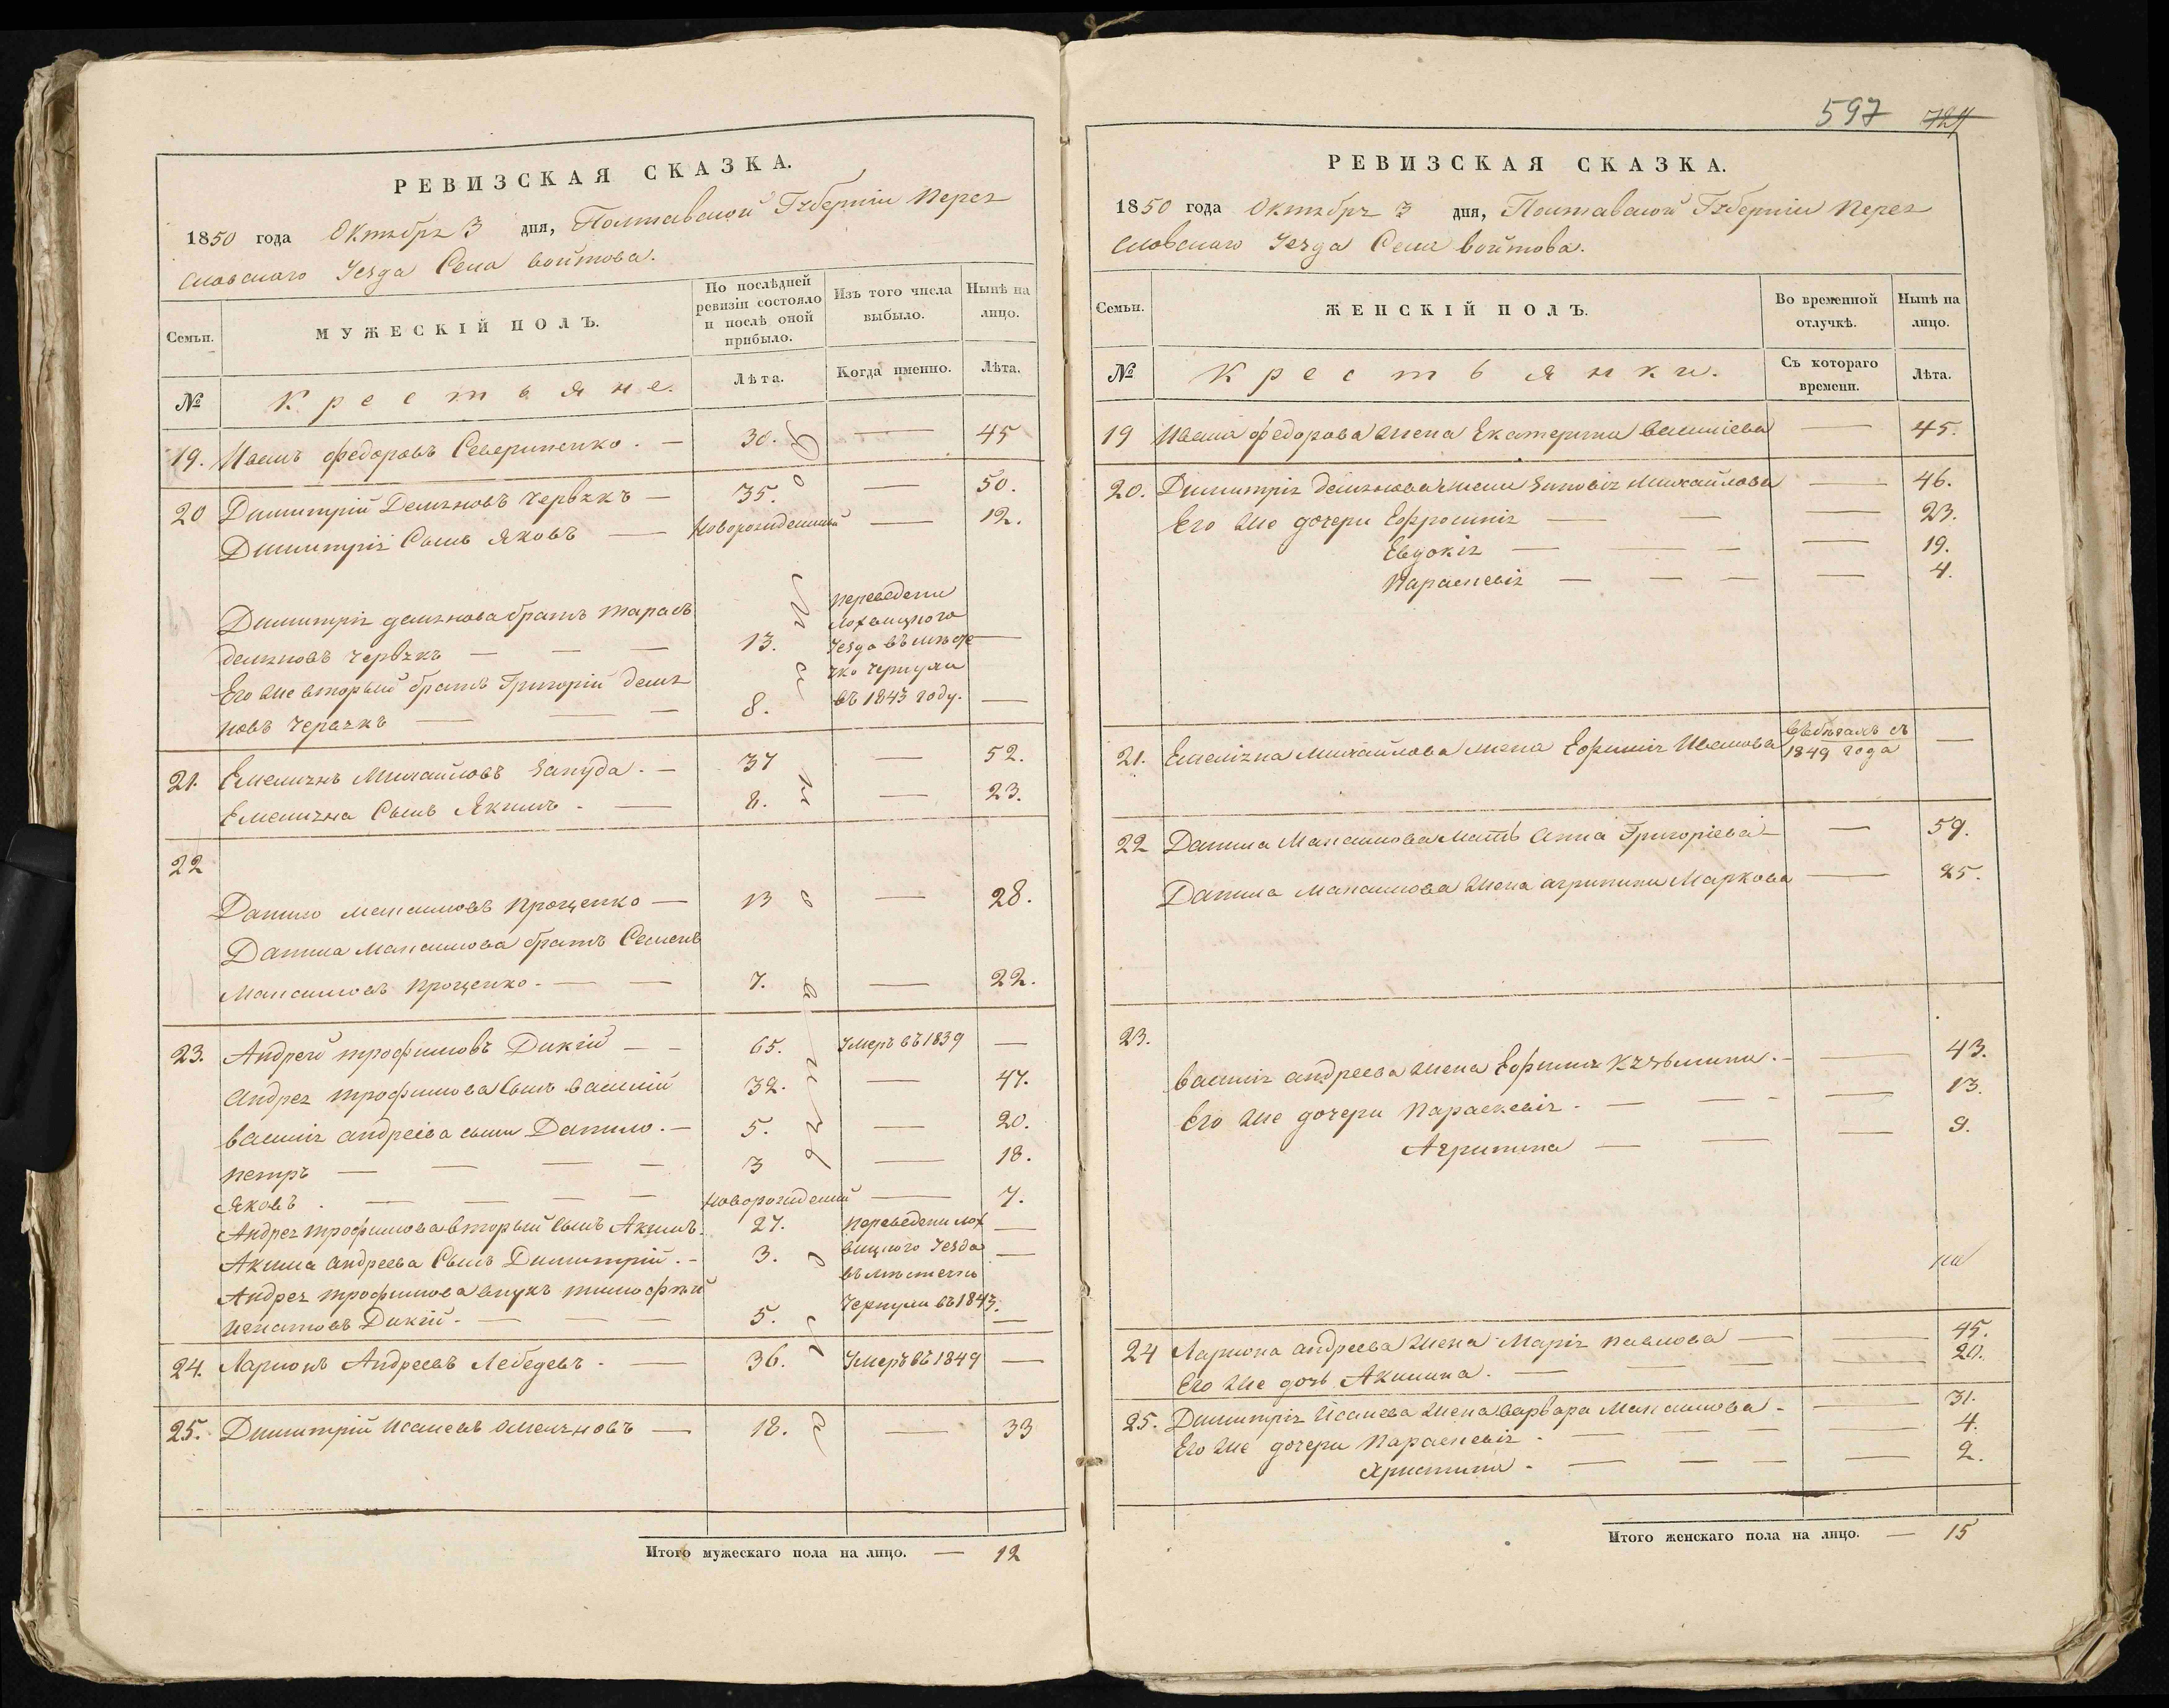 597 724
РЕВИЗСКАЯ СКАЗКА.
1850 года Октября 3 дня, Полтавской Губерніи Перея
славскаго Уезда Села Войтова.
Семьи.
МУЖЕСКІЙ ПОЛЪ.
По послѣдней
ревизіи состояло
и послѣ оной
прибыло.
Изъ того числа
выбыло.
Нынѣ на
лицо.
№
Крестьяне.
Лѣта.
Когда именно.
Лѣта.
19. Иванъ Федоровъ Севериненко. — 30. — 45
20 Димитрій Демяновъ Червякъ — 35. — 50.
Димитрія Сынъ Яковъ — Новорожденный — 12.
Димитрія демянова братъ тарасъ
демяновъ червякъ — — — 13.
Его же вторый братъ Григорій демя
новъ Червякъ — — — 8.
переведены
лохвицкого
Уезда въ месте
чко Чернухи
въ 1843 году.
21. Емельянъ Михайловъ Запуда. — 37 — 52.
Емельяна Сынъ Якимъ. — 8. — 23.
22
Данило максимовъ Проценко — 13 — 28.
Данила Максимова братъ Семенъ
Максимовъ Проценко. — — 7. — 22.
23. Андрей трофимовъ Дикій — — 65. Умеръ въ 1839 —
Андрея трофимова Сынъ василій 32. — 47.
василія андреева сыны Данило. — 5. — 20.
петръ — — — — 3 — 18.
Яковъ. — — — — Новорожденый — 7.
Андрея трофимова вторый Сынъ Акимъ. 27. —
Акима Андреева Сынъ Димитрій. — 3. —
Андрея трофимова внукъ тимофѣй
игнатовъ Дикій. — — — 5. —
переведены лох
вицкого Уезда
въ местечко
Чернухи въ 1843.
24. Ларионъ Андреевъ Лебедевъ. — 36. Умеръ въ 1849 —
25. Димитрій Исаевъ Омеляновъ — 18. — 33
Итого мужескаго пола на лицо. — 12
РЕВИЗСКАЯ СКАЗКА.
1850 года Октября 3 дня, Полтавской Губерніи Перея
славскаго Уезда Села Войтова.
Семьи.
ЖЕНСКІЙ ПОЛЪ.
Во временной
отлучкѣ.
Нынѣ на
лицо.
№
Крестьянки.
Съ котораго
времени.
Лѣта.
19 Ивана Федорова жена Екатерина Василіева — 45.
20. Димитрія демянова жена Зиновія Михайлова — 46.
Его же дочери Ефросинія — — — 23.
Евдокія — — — — 19.
Параскевія — — — — 4.
21. Емеліяна Михайлова жена Ефимія Иванова въ бегахъ съ —
1849 года
22 Данила Максимова мать Анна Григоріева — — 59.
Данила максимова жена агрипина Маркова — 25.
23.
василія андреева жена Ефимія Кузьмина. — — 43.
Его же дочери Параскевія. — — — 13.
Агрипина — — — 9.
на
24 Лариона андреева жена Марія Павлова — — 45.
Его же дочь Акилина. — — — 20.
25. Димитрія Исаева жена варвара Максимова. — 31.
Его же дочери Параскевія. — — — — 4.
Христина. — — — — 2.
Итого женскаго пола на лицо. — 15